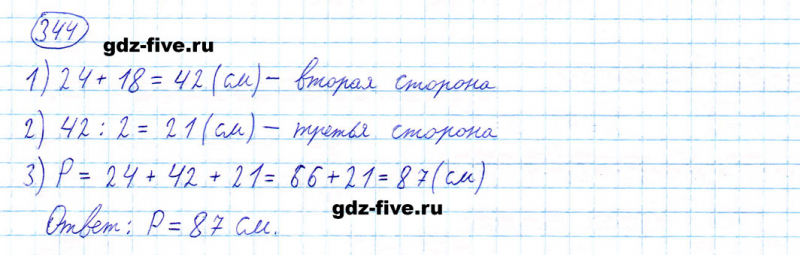 344
gdz-five.ru
1) 24 + 18 = 42 (см) – вторая сторона
2) 42 : 2 = 21 (см) – третья сторона
3) P = 24 + 42 + 21 = 66 + 21 = 87 (см)
gdz-five.ru
Ответ: P = 87 см.